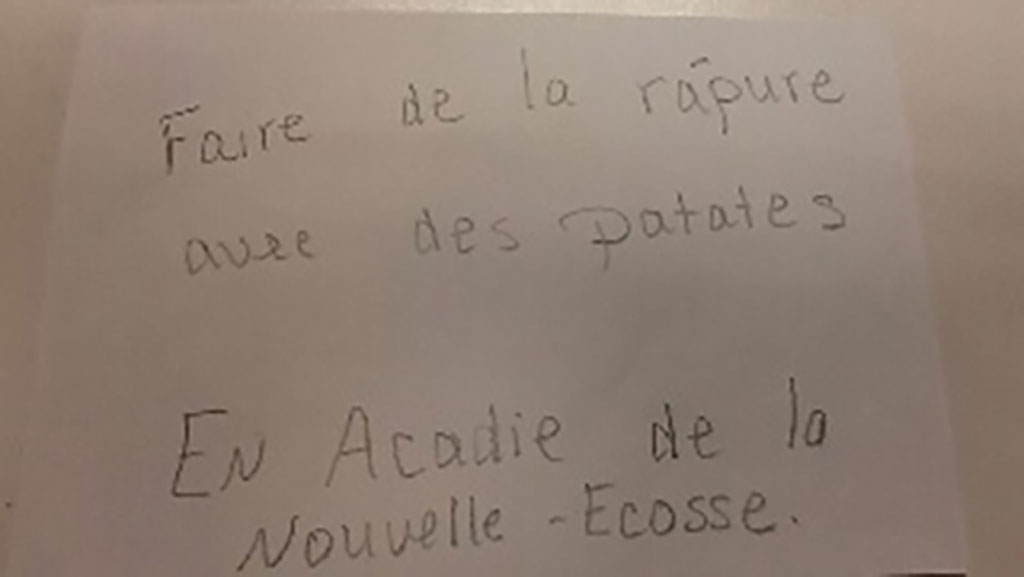 Faire de la râpure
avec des patates
En Acadie de la
Nouvelle-Ecosse.